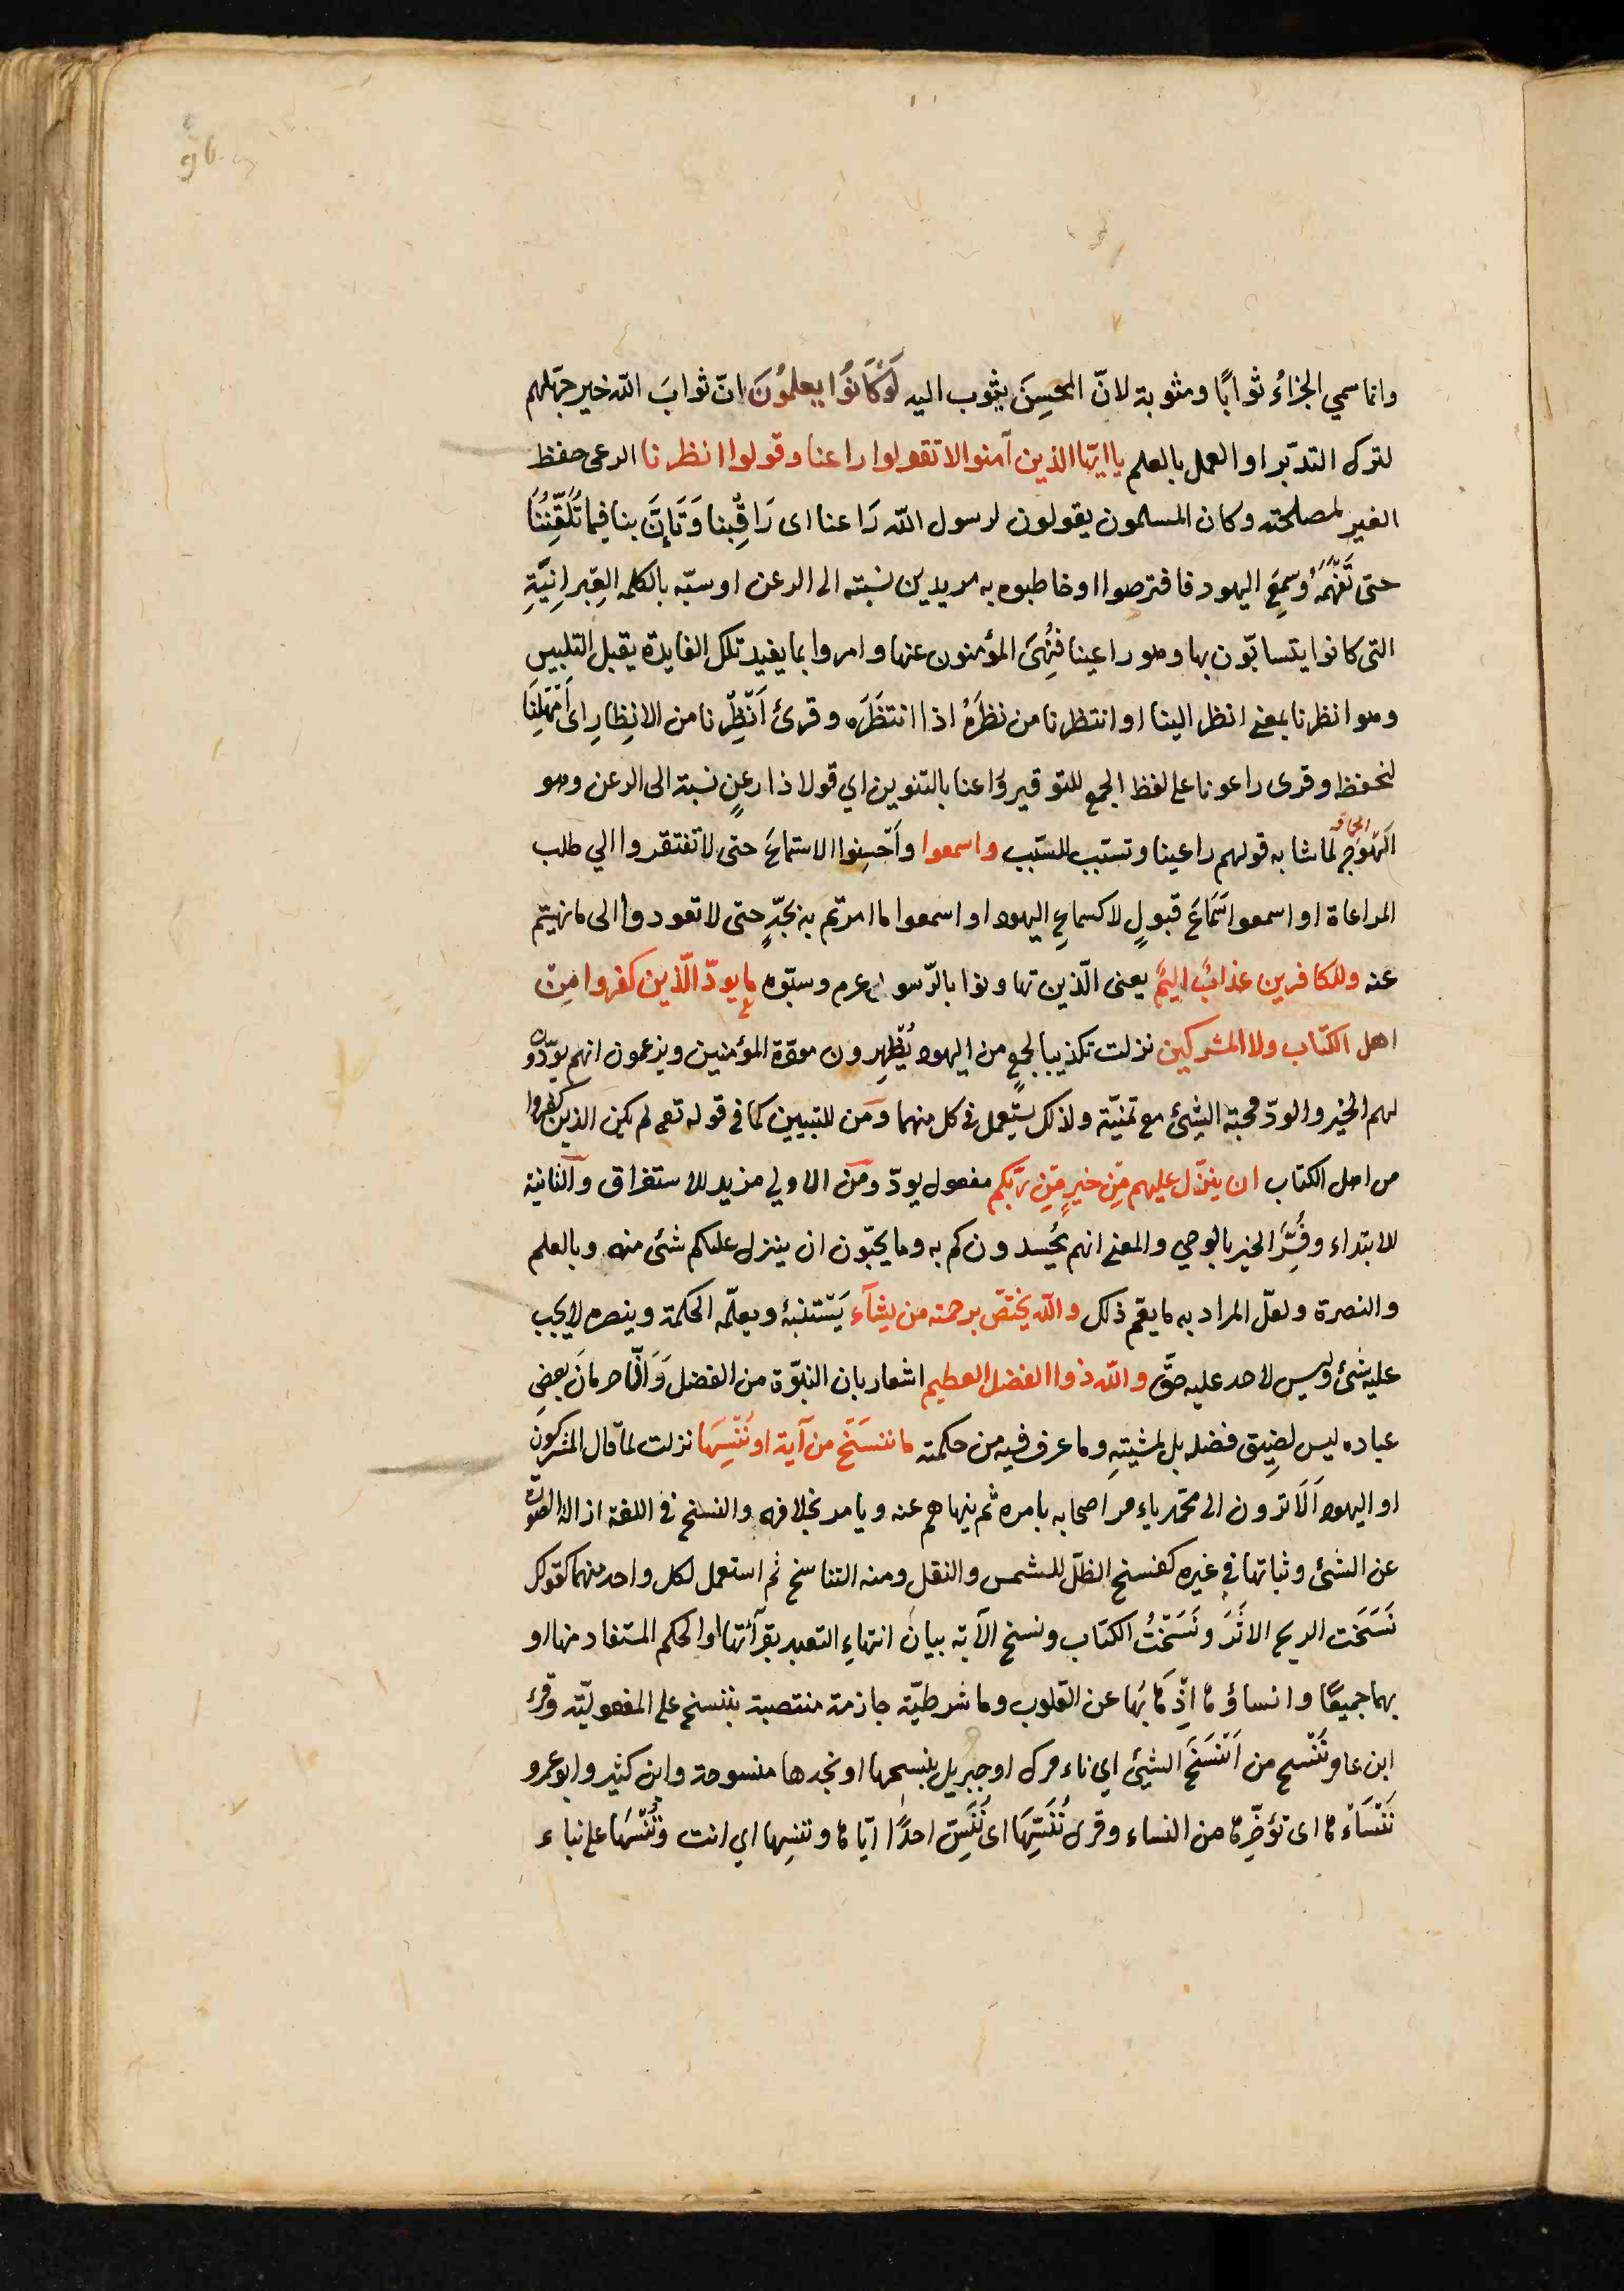 96
وانما سمي الجزاءُ ثوابًا ومثوبة لانّ المحسِنَ يثوب اليه لَوْكَانُوا يعلمُونَ انّ ثوابَ الله خير جهّلهم
لترك التدبّر او العمل بالعلم يا ايّها الذين آمنوا لا تقولوا راعنا وقولوا انظرنا الرعى حفظ
الغير لمصلحته وكان المسلمون يقولون لرسول الله رَاعنا اى رَاقِبْنا وَتَأَنَّ بنا فيما تُلَقِّنُنَا
حتى نَفْهَمَهُ وَسمِعَ اليهود فافترصوا وخاطبوه به مريدين نسبته الى الرعن او سبّه بالكلمه العِبرانِيَّةِ
التى كانوا يتسابّون بها وهو راعينا فَنُهِىَ المؤمنون عنها وامروا بما يفيد تلك الفايدة يقبل التلبيس
وهو انظرنا بمعنى انظر الينا او انتظرنا من نظَرَهُ اذا انتظَرَه وقرئ اَنْظِرْنا من الانظِارِ اى اَمْهِلنَا
لنحفظ وقرى راعونا على لفظ الجمع للتوقير وراعنا بالتنوين اي قولا ذا رعنٍ نسبة الى الرعن وهو
الهَوَج لما شابه قولهم راعينا وتسبّب للسّبب واسمعوا وأَحْسِنوا الاستماعَ حتى لا تفتقروا الي طلب
المراعاة او اسمعوا سَمَاعَ قبولٍ لا كسماعِ اليهود او اسمعوا ما امرتم به بجدٍّ حتى لا تعودوا الى ما نهيتم
عنه وللكافرين عذابٌ اليمٌ يعنى الّذين تهاونوا بالرّسول عرم وسبّوه ما يودّ الّذين كفروا مِن
اهل الكتاب ولا المشركين نزلت تكذيبا لجمعٍ من اليهود يُظْهِرون مودّة المؤمنين ويزعمون انهم يودّون
لهم الخير والودّ محبّة الشئ مع تمنيّة ولذلك يستعمل فى كل منهما وَمن للتبيين كما فى قوله تعم لم يكن الذين كفروا
من اهل الكتاب ان ينزّل عليهم مِّن خيرٍ مِّن ربّكم مفعول يودّ ومَن الاولي مزيد للاستغراق والثانية
للابتداء وفُسِّرَ الخير بالوحي والمعنى انهم يُحسدونكم به وما يحبّون ان ينزل عليكم شئ منه وبالعلم
والنصرة ولعلّ المراد به ما يعم ذلك والله يختصّ برحمته من يشآء يَسْتنبئه ويعلّمه الحكمة وينصره لا يجب
عليه شئ وليس لاحد عليه حقٌّ والله ذوا الفضل العظيم اشعار بان النبوّة من الفضل وَانّ حرمانَ بعض
عباده ليس لضِيق فضله بل لمشيتهِ وما عرف فيه من حكمته ما ننسَخ من آية او نُنْسِهَا نزلت لما قال المشركون
او اليهود اَلَا ترون الى محمّد يامر اصحابه بامره ثم ينهاهم عنه ويامر بخلافه والنسخ فى اللغة ازالة الصورة
عن الشئ وثباتها في غيره كنسخ الظلّ للشمس والنقل ومنه التناسخ ثم استعمل لكل واحد منهما كقولك
نَسَخَت الريح الاثَرَ ونَسَخْتُ الكتاب ونسخ الآية بيان انتهاءِ التعبد بقرآئتها او الحكم المستفاد منها او
بهما جميعًا وانساؤها اِذْهَابُها عن القلوب وما شرطيّة جازمة منتصبة بننسخ على المفعوليّة وقرئ
ابن عامر نُنْسخ من اَنْسَخَ الشئ اي نامرك او جبريل بنسخها او نجدها منسوحة وابن كثير وابو عمرو
نَنْسَاْها اى نؤخّرها من النساء وقرى نُنَسِّهَا اى نُنَسِّ احدًا ايّاها وننسها اي انت وتُنْسَهَا على نباء